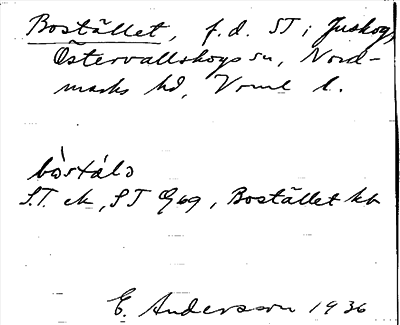 Boställlet, f.d. ST i Juskog,
Östervallskogs sn, Nord-
marks hd, Vrml l.
bòstálə
S.T. ek, ST Öj69, Bostället kb
E. Andersson 1936